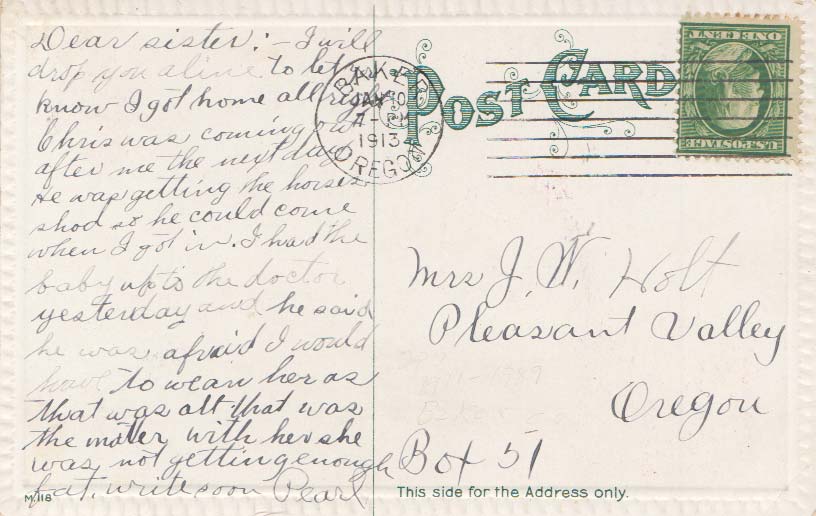 Dear sister:- I will
drop you a line to let you
know I got home all right
Chris was coming
after me the next day
He was getting the horses
shod so he could come
when I got in. I had the
baby up to the doctor
yesterday and he said
he was afraid I would
have to wean her as
that was all that was
the matter with her she
was not getting enough
fat. write soon Pearl
M.118
BAKER
JAN 10
1913
OREGON
POST CARD
ONE CENT
U.S. POSTAGE
Mrs J. W. Holt
Pleasant Valley
Oregon
Box 51
This side for the Address only.